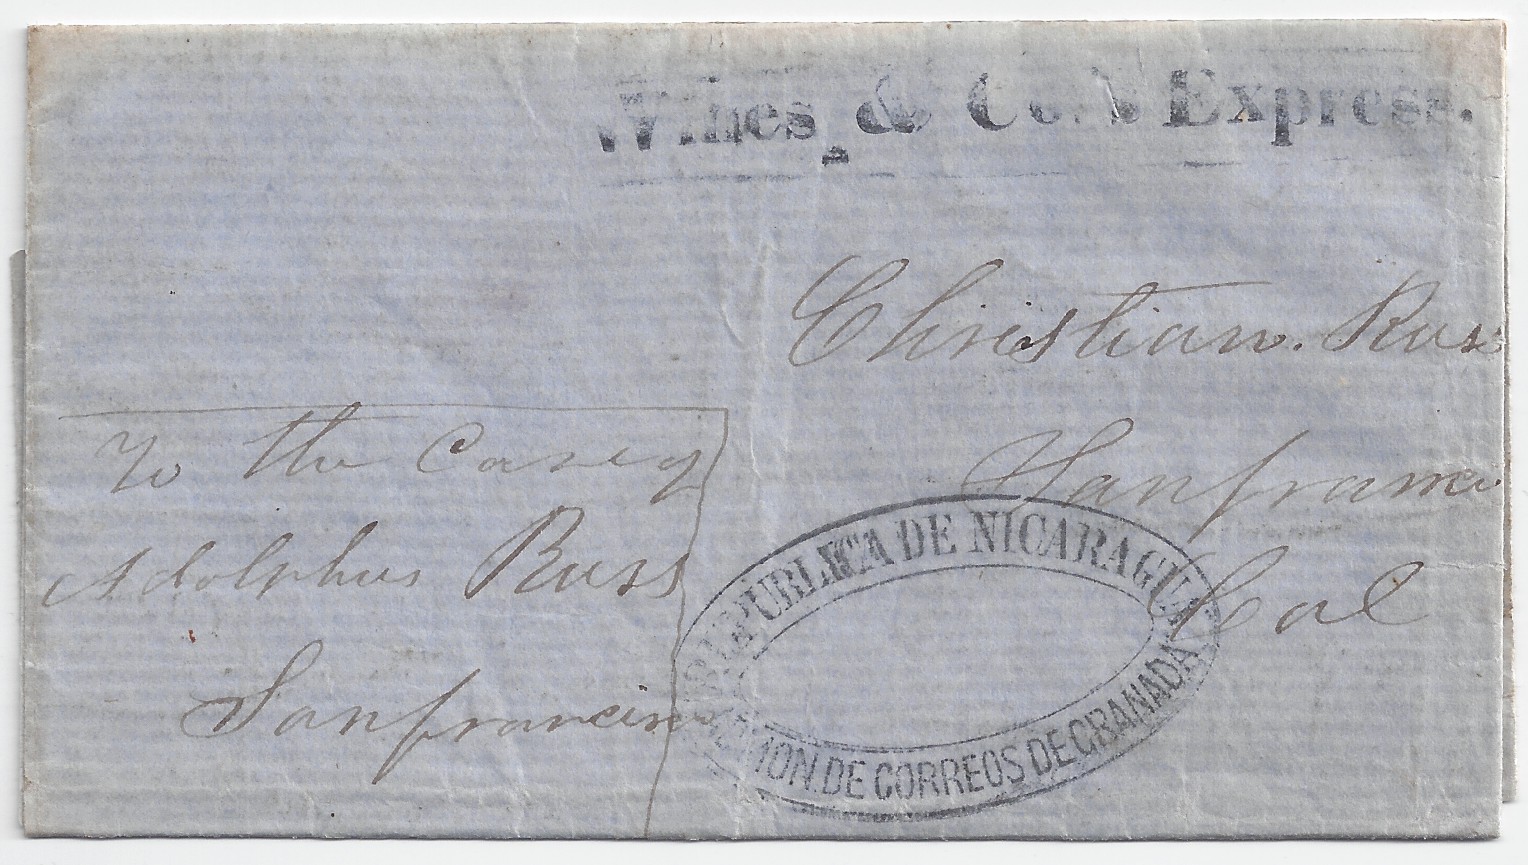 Wines & Co.'s Express.
Christian. Russ
Sanfrancisco
Cal
To the Care of
Adolphus Russ
Sanfrancisco
REPUBLICA DE NICARAGUA
ADMON. DE CORREOS DE GRANADA